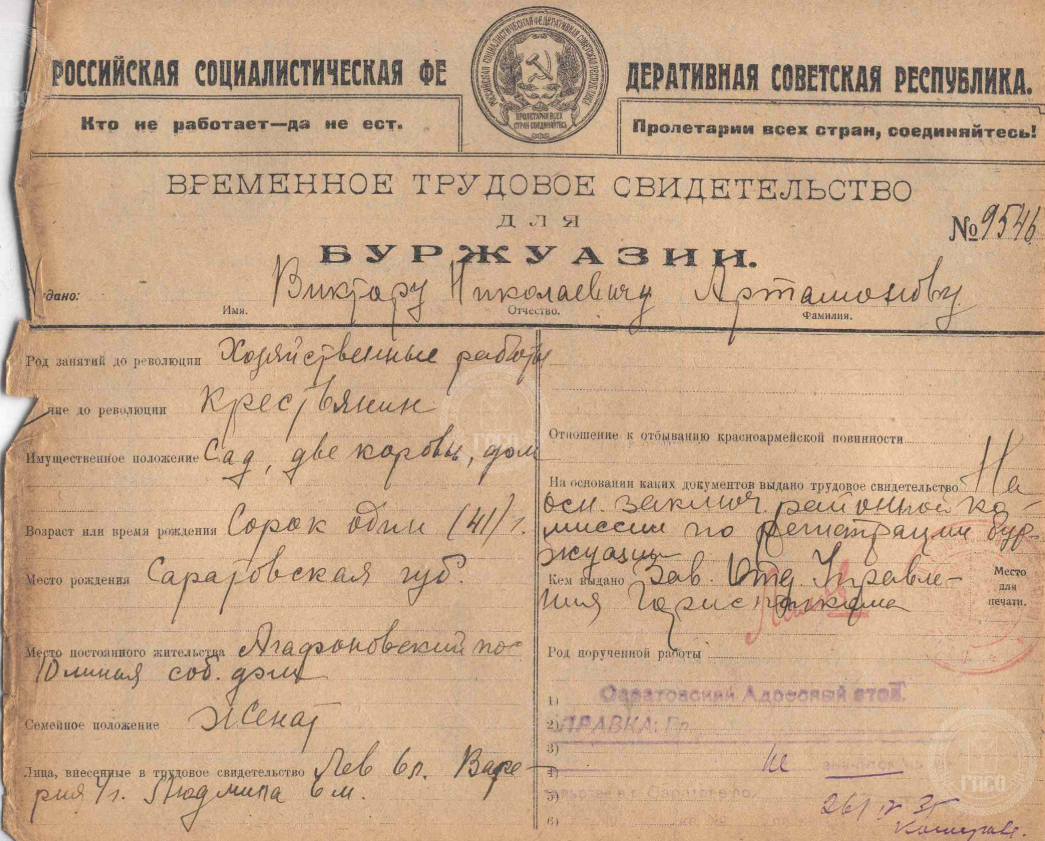 РОССИЙСКАЯ СОЦИАЛИСТИЧЕСКАЯ ФЕ ДЕРАТИВНАЯ СОВЕТСКАЯ РЕСПУБЛИКА.
ПРОЛЕТАРИИ ВСЕХ
СТРАН СОЕДИНЯЙТЕСЬ
Кто не работает—да не ест.
Пролетарии всех стран, соединяйтесь!
ВРЕМЕННОЕ ТРУДОВОЕ СВИДЕТЕЛЬСТВО
ДЛЯ
№ 9546
БУРЖУАЗИИ.
дано: Виктору Николаевичу Артамонову
Имя. Отчество. Фамилия.
Род занятий до революции Хозяйственные работы
яние до революции Крестьянин
Имущественное положение Сад, две коровы, дом
Возраст или время рождения Сорок один (41) г.
Место рождения Саратовская губ.
Место постоянного жительства Агафоновский пос
10 линия соб. дом
Семейное положение Женат
Лица, внесенные в трудовое свидетельство Лев 6 л. Вале-
рия 4 г. Людмила 6 м.
Отношение к отбыванию красноармейской повинности
На основании каких документов выдано трудовое свидетельство На
осн. заключ. районной ко-
миссии по регистрации бур-
жуазии
Кем выдано Зав. Отд. Управле-
ния Горисполкома
Место
для
печати.
Род порученной работы
1) Саратовский Адресный стол.
2) ПРАВКА: Гр.
3) не
4)
5)
6)
ГПСО
ГПСО